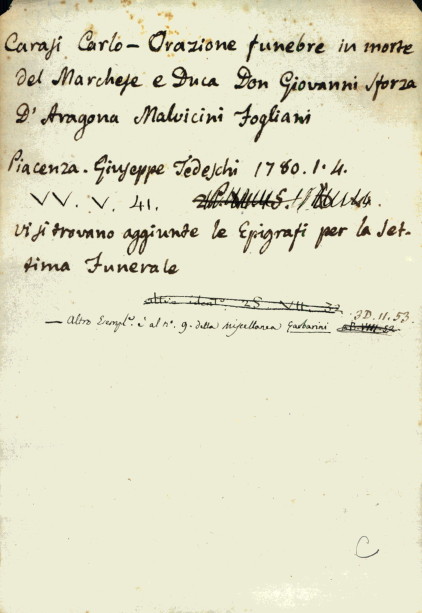 Carasi Carlo – Orazione funebre in morte
del Marchese e Duca Don Giovanni Sforza
D'Aragona Malvicini Fogliani
Piacenza. Giuseppe Tedeschi 1780. 1. 4.
VV. V. 41.
vi si trovano aggiunte le Epigrafi per la Set-
tima Funerale
3D. 11. 53.
— Altro Esempl.e è al n.o 9. della Miscellanea Garbarini
C